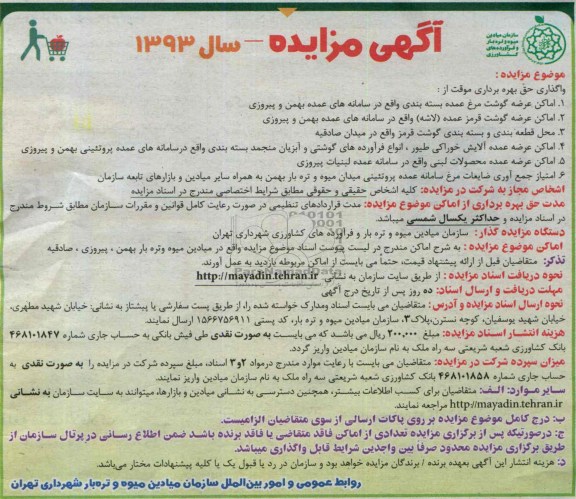 سازمان میادین
میوه و تره بار
و فرآورده های
کشاورزی
آگهی مزایده – سال ۱۳۹۳
موضوع مزایده :
واگذاری حق بهره برداری موقت از :
۱. اماکن عرضه گوشت مرغ عمده بسته بندی واقع در سامانه های عمده بهمن و پیروزی
۲. اماکن عرضه گوشت قرمز عمده (لاشه) واقع در سامانه های عمده بهمن و پیروزی
۳. محل قطعه بندی و بسته بندی گوشت قرمز واقع در میدان صادقیه
۴. اماکن عرضه عمده آلایش خوراکی طیور ، انواع فرآورده های گوشتی و آبزیان منجمد بسته بندی واقع درسامانه های عمده پروتئینی بهمن و پیروزی
۵. اماکن عرضه عمده محصولات لبنی واقع در سامانه عمده لبنیات پیروزی
۶. امتیاز جمع آوری ضایعات مرغ سامانه عمده پروتئینی میدان میوه و تره بار بهمن به همراه سایر میادین و بازارهای تابعه سازمان
اشخاص مجاز به شرکت در مزایده: کلیه اشخاص حقیقی و حقوقی مطابق شرایط اختصاصی مندرج در اسناد مزایده
مدت حق بهره برداری از اماکن موضوع مزایده: مدت قراردادهای تنظیمی در صورت رعایت کامل قوانین و مقررات سازمان مطابق شروط مندرج
در اسناد مزایده و حداکثر یکسال شمسی میباشد.
دستگاه مزایده گذار : سازمان میادین میوه و تره بار و فرآورده های کشاورزی شهرداری تهران
اماکن موضوع مزایده : به شرح اماکن مندرج در لیست پیوست اسناد موضوع مزایده واقع در میادین میوه وتره بار بهمن ، پیروزی ، صادقیه
تذکر: متقاضیان قبل از ارائه پیشنهاد قیمت، حتما می بایست از اماکن مربوطه بازدید به عمل آورند.
نحوه دریافت اسناد مزایده : از طریق سایت سازمان به نشانی http://mayadin.tehran.ir
مهلت دریافت و ارسال اسناد: ده روز پس از تاریخ درج آگهی
نحوه ارسال اسناد مزایده و آدرس : متقاضیان می بایست اسناد ومدارک خواسته شده را، از طریق پست سفارشی یا پیشتاز به نشانی: خیابان شهید مطهری،
خیابان شهید یوسفیان، کوچه نسترن،پلاک۳، سازمان میادین میوه و تره بار، کد پستی ۱۵۶۶۷۵۶۹۱۱ ارسال نمایند.
هزینه انتشار اسناد مزایده: مبلغ ۲۰۰,۰۰۰ ریال می باشد که می بایست به صورت نقدی طی فیش بانکی به حساب جاری شماره ۴۶۸۱۰۱۸۴۷
بانک کشاورزی شعبه شریعتی سه راه ملک به نام سازمان میادین واریز گردد.
میزان سپرده شرکت در مزایده: متقاضیان می بایست با رعایت موارد مندرج درمواد ۲و۳ اسناد، مبلغ سپرده شرکت در مزایده را به صورت نقدی به
حساب جاری شماره ۴۶۸۱۰۱۸۵۸ بانک کشاورزی شعبه شریعتی سه راه ملک به نام سازمان میادین واریز نمایند.
سایر موارد: الف: متقاضیان برای کسب اطلاعات بیشتر، همچنین دسترسی به نشانی میادین و بازارها، میتوانند به سایت سازمان به نشانی
http://mayadin.tehran.ir مراجعه نمایند.
ب: درج کامل موضوع مزایده بر روی پاکات ارسالی از سوی متقاضیان الزامیست.
ج: درصورتیکه پس از برگزاری مزایده تعدادی از اماکن فاقد متقاضی یا فاقد برنده باشد ضمن اطلاع رسانی در پرتال سازمان از
طریق برگزاری مزایده محدود صرفا بین واجدین شرایط قابل واگذاری میباشد.
د: هزینه انتشار این آگهی بعهده برنده / برندگان مزایده خواهد بود و سازمان در رد یا قبول یک یا کلیه پیشنهادات مختار می‌باشد.
روابط عمومی و امور بین‌الملل سازمان میادین میوه و تره‌بار شهرداری تهران